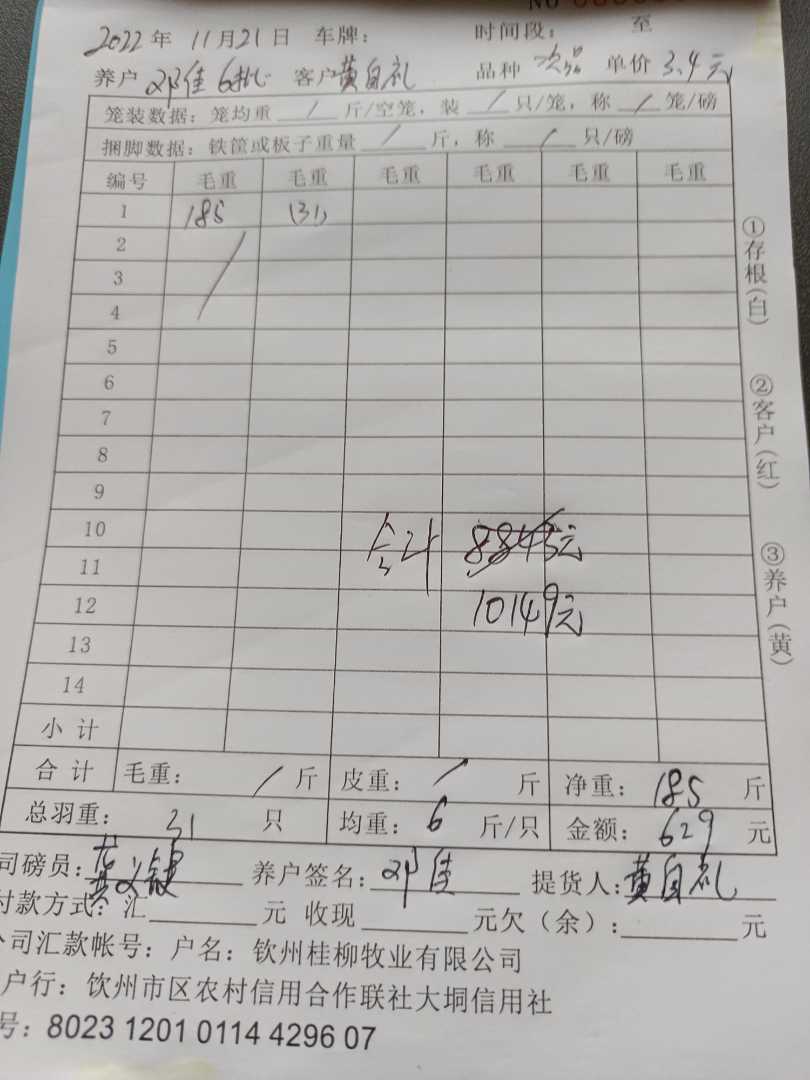 2022年 11月21日 车牌： 时间段： 至
养户 邓佳 6批 客户 黄自礼 品种 次品 单价 3.4元
笼装数据：笼均重 / 斤/空笼，装 / 只/笼，称 / 笼/磅
捆脚数据：铁筐或板子重量 / 斤，称 / 只/磅
编号 毛重 毛重 毛重 毛重 毛重 毛重
1 185 (31)
2
3
4
5
6
7
8
9
10 合计 8845元
11
12 10149元
13
14
小计
合计 毛重： / 斤 皮重： / 斤 净重： 185 斤
总羽重： 31 只 均重： 6 斤/只 金额： 629 元
司磅员： 养户签名：邓佳 提货人：黄自礼
付款方式：汇 元 收现 元欠（余）： 元
公司汇款帐号：户名：钦州桂柳牧业有限公司
户行：饮州市区农村信用合作联社大垌信用社
号：8023 1201 0114 4296 07
①存根（白）
②客户（红）
③养户（黄）